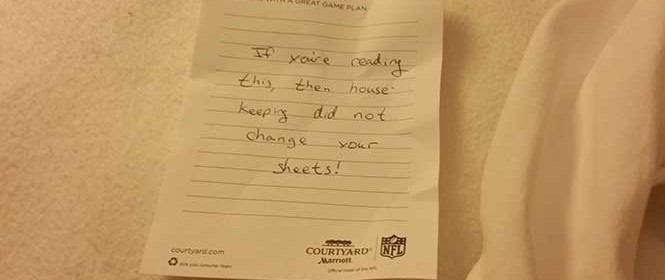 WITH A GREAT GAME PLAN.
If you're reading
this, then house-
keeping did not
change your
sheets!
courtyard.com
COURTYARD®
Marriott
NFL
Official Hotel of the NFL
30% post-consumer fibers